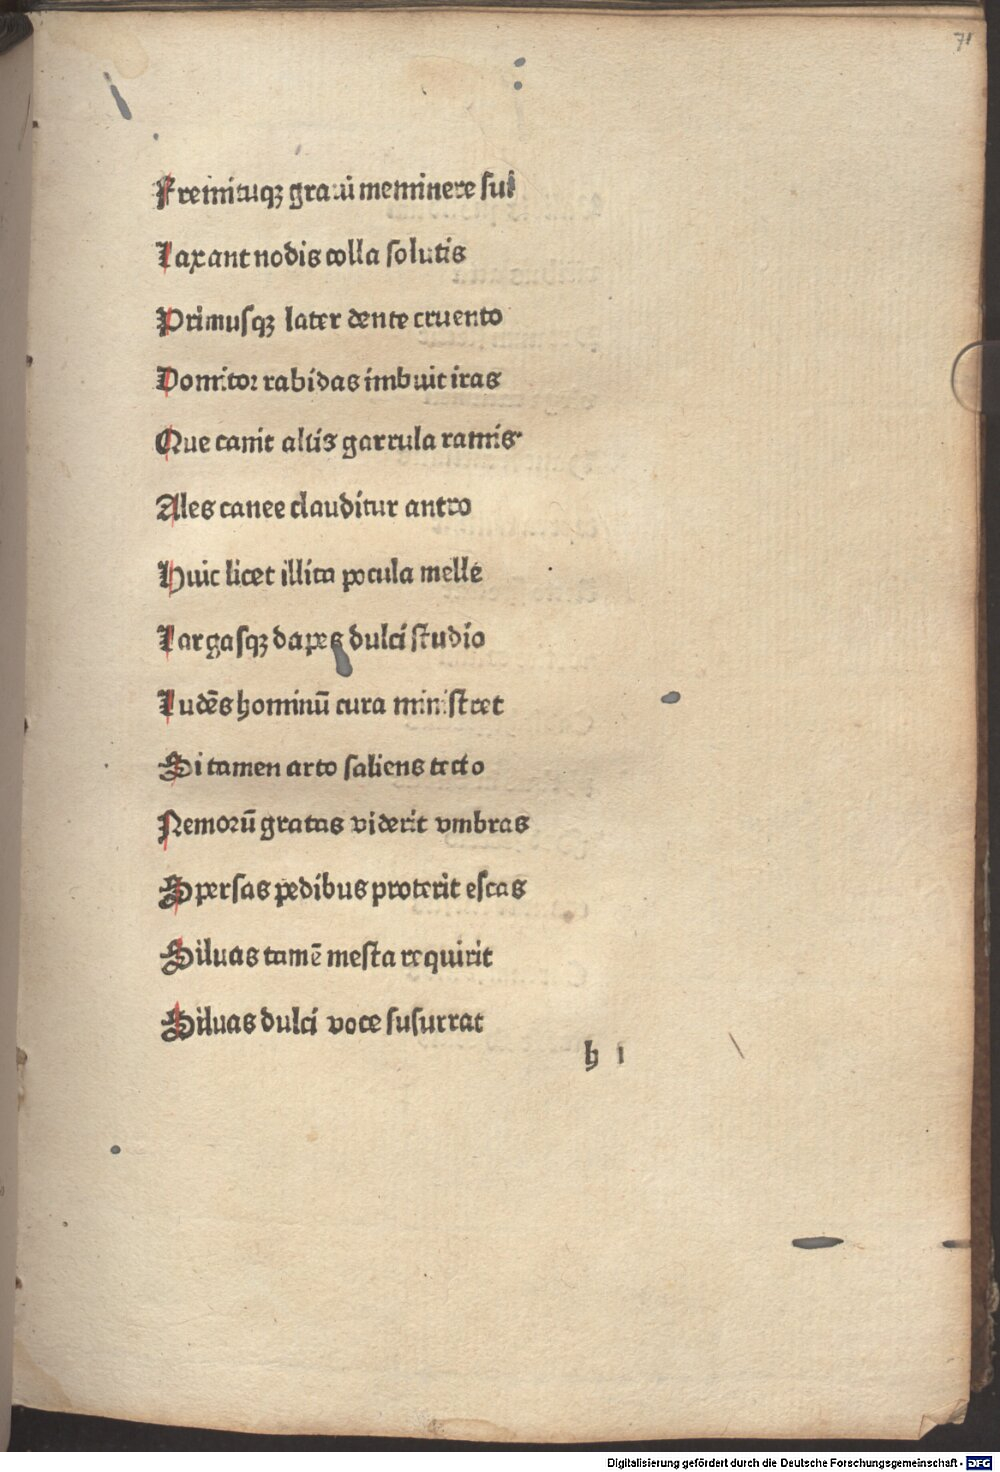 71
Fremituqꝫ graui meminere sui
Laxant nodis colla solutis
Primusqꝫ later dente cruento
Domitor rabidas imbuit iras
Que canit altis garrula ramis
Ales canee clauditur antro
Huic licet illita pocula melle
Largasqꝫ dapes dulci studio
Ludēs hominū cura ministret
Si tamen arto saliens tecto
Nemorū gratas viderit vmbras
Spersas pedibus proterit escas
Siluas tamē mesta requirit
Siluas dulci voce susurrat
h i
Digitalisierung gefördert durch die Deutsche Forschungsgemeinschaft - DFG